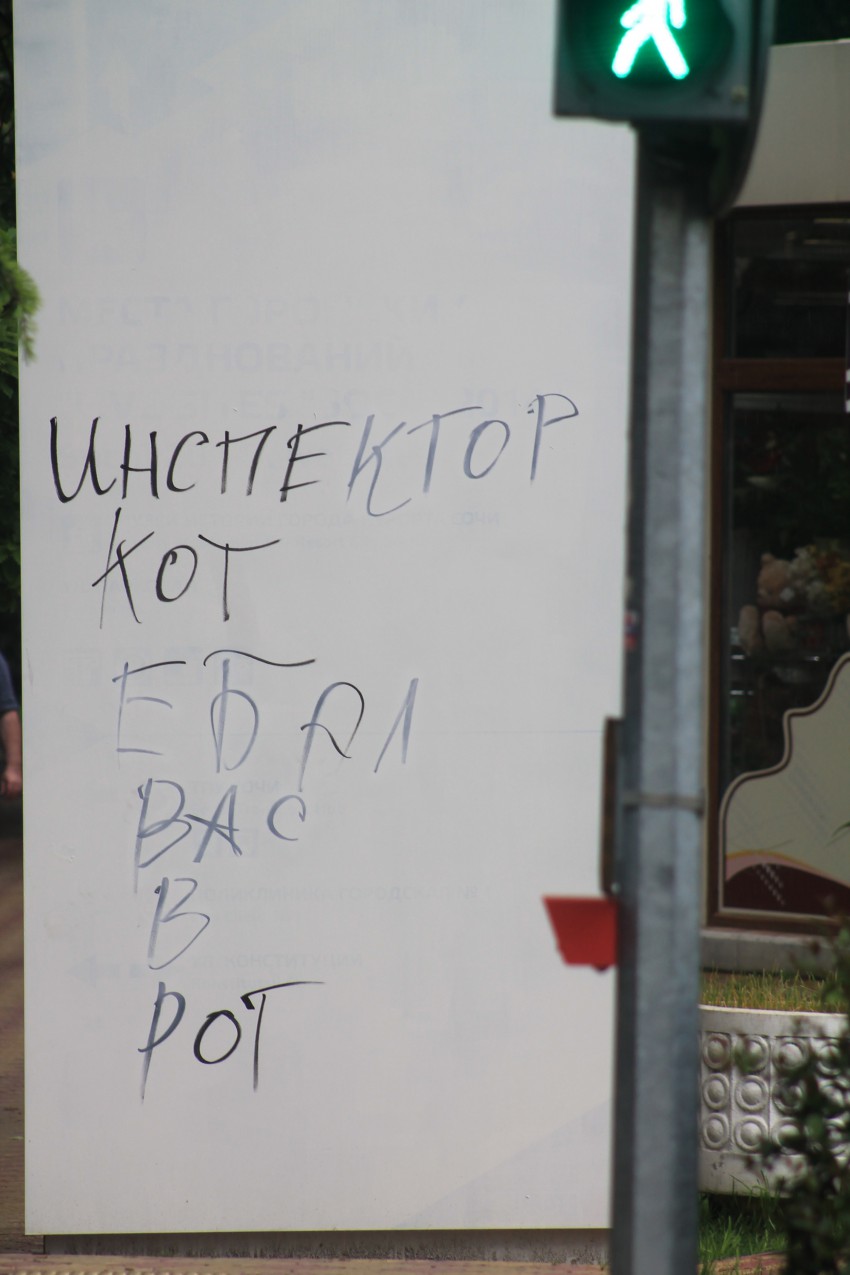 ИНСПЕКТОР
КОТ
ЕБАЛ
ВАС
В
РОТ